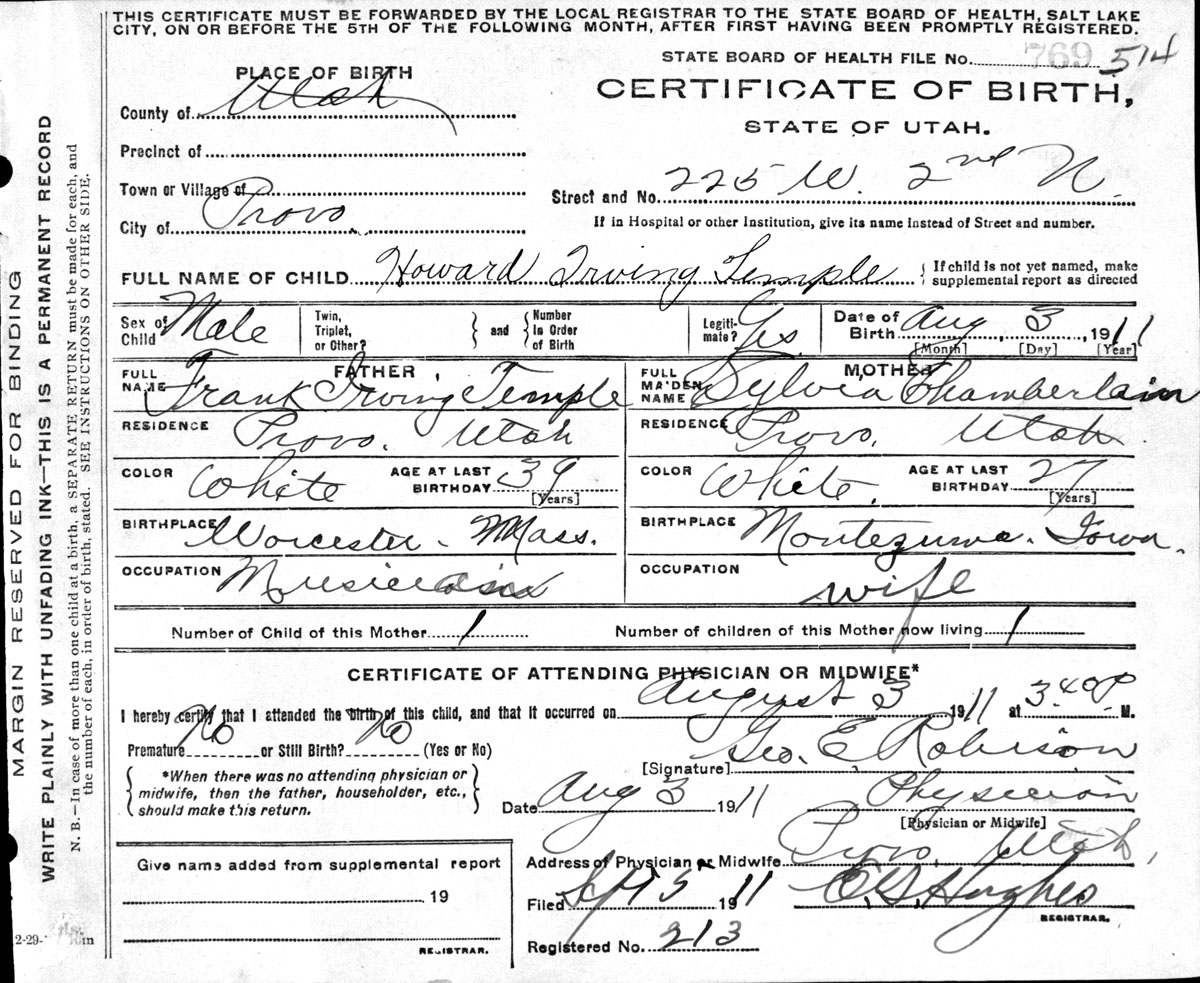 THIS CERTIFICATE MUST BE FORWARDED BY THE LOCAL REGISTRAR TO THE STATE BOARD OF HEALTH, SALT LAKE
CITY, ON OR BEFORE THE 5TH OF THE FOLLOWING MONTH, AFTER FIRST HAVING BEEN PROMPTLY REGISTERED.
STATE BOARD OF HEALTH FILE No. 769 514
PLACE OF BIRTH
CERTIFICATE OF BIRTH,
STATE OF UTAH.
County of Utah
Precinct of
Town or Village of
Street and No. 225 W. 2nd N.
City of Provo
If in Hospital or other Institution, give its name instead of Street and number.
FULL NAME OF CHILD Howard Irving Temple { If child is not yet named, make
supplemental report as directed
Sex of Child Male Twin, Triplet, or Other? } and { Number In Order of Birth Legiti-mate? Yes Date of Birth Aug 3, 1911
[Month] [Day] [Year]
FATHER MOTHER
FULL NAME Frank Irving Temple FULL MAIDEN NAME Sylvia Chamberlain
RESIDENCE Provo. Utah RESIDENCE Provo. Utah
COLOR White AGE AT LAST BIRTHDAY 39 [Years] COLOR White. AGE AT LAST BIRTHDAY 27 [Years]
BIRTHPLACE Worcester. Mass. BIRTHPLACE Montezuma. Iowa.
OCCUPATION Musician OCCUPATION wife
Number of Child of this Mother 1 Number of children of this Mother now living 1
CERTIFICATE OF ATTENDING PHYSICIAN OR MIDWIFE*
I hereby certify that I attended the birth of this child, and that it occurred on August 3 1911 at 3.40 P M.
Premature No or Still Birth? No (Yes or No)
[Signature] Geo. E. Robison
{ *When there was no attending physician or
midwife, then the father, householder, etc.,
should make this return. }
Date Aug 3 1911 Physician
[Physician or Midwife]
Address of Physician or Midwife Provo, Utah,
Give name added from supplemental report
19
REGISTRAR.
Filed Sept 5 1911 E. G. Hughes
REGISTRAR.
Registered No. 213
MARGIN RESERVED FOR BINDING
WRITE PLAINLY WITH UNFADING INK—THIS IS A PERMANENT RECORD
N. B.—In case of more than one child at a birth, a SEPARATE RETURN must be made for each, and
the number of each, in order of birth, stated. SEE INSTRUCTIONS ON OTHER SIDE.